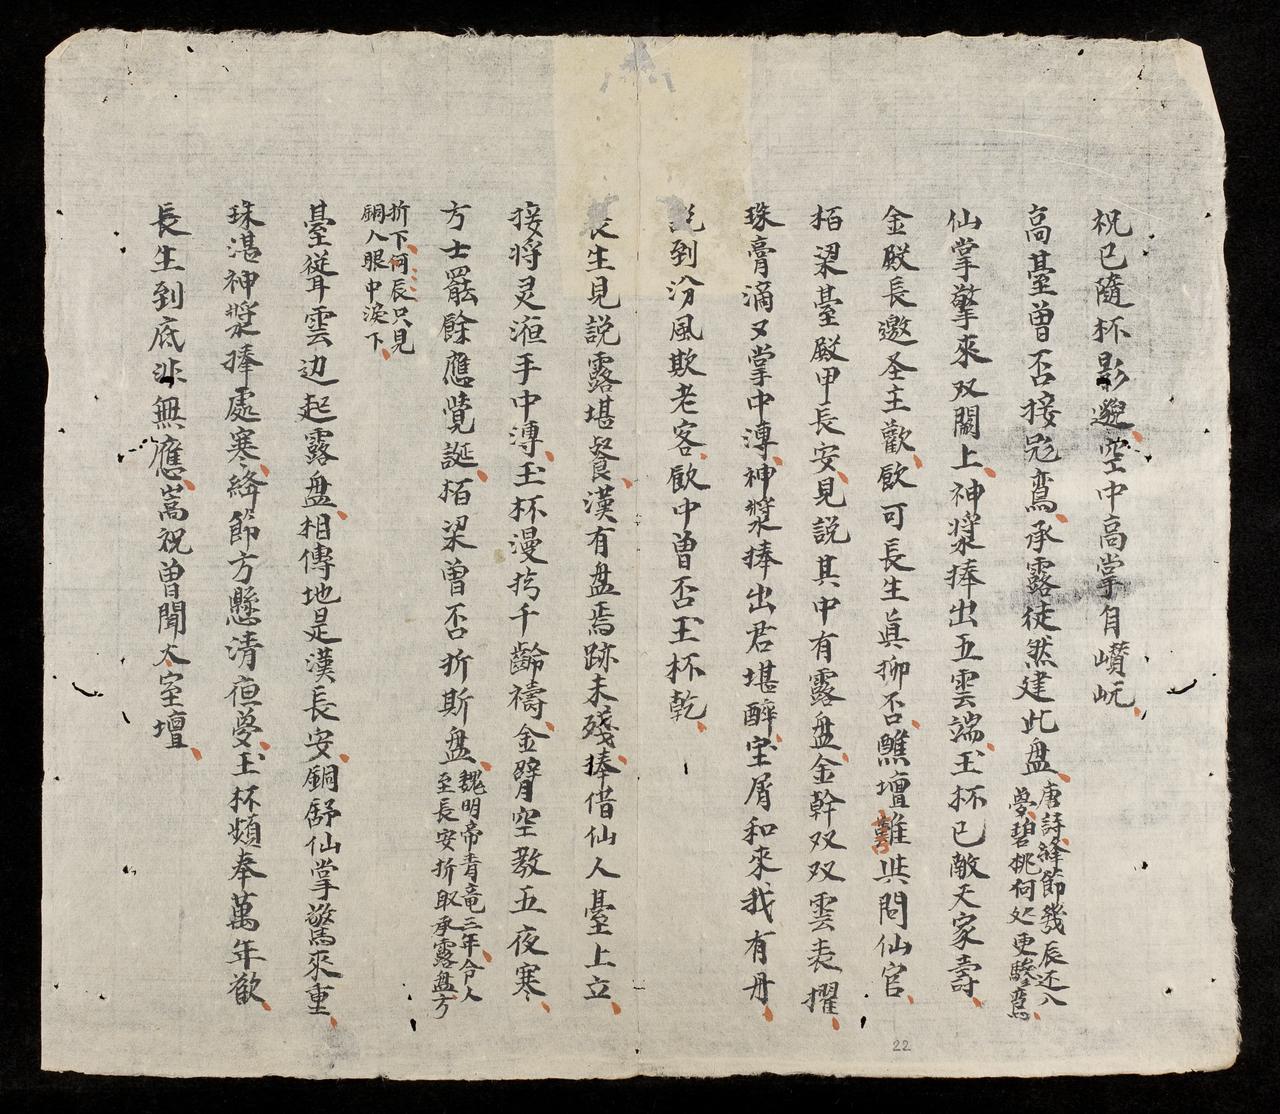 祝已隨杯影邈空中高掌自巑岏
高臺曾否接彩鸞承露徒然建此盘唐詩絳節幾辰还入
夢碧桃何处更驂鸞
仙掌擎來双闕上神漿捧出五雲端玉杯已敵天家壽
金殿長邀圣主歡飲可長生真抑否醮壇難共問仙官
栢梁臺殿甲長安見説其中有露盘金幹双双雲表擢
珠膏滴又掌中漙神漿捧出君堪醉宝屑和來我有丹
説到汾風欺老客歓中曾否玉杯乾
長生見説露堪餐漢有盘焉跡未殘捧借仙人臺上立
接將灵洹手中漙玉杯漫挹千齡禱金臂空教五夜寒
方士罷餘應覺誕栢梁曾否折斯盘魏明帝青竜三年令人
至長安折取承露盘方
折下何辰只見
銅人眼中淚下
臺從耳雲边起露盘相傳地是漢長安銅舒仙掌驚來重
珠湛神漿捧處寒絳節方懸清夜夢玉杯頻奉萬年歡
長生到底非無應嵩祝曽聞太室壇
22